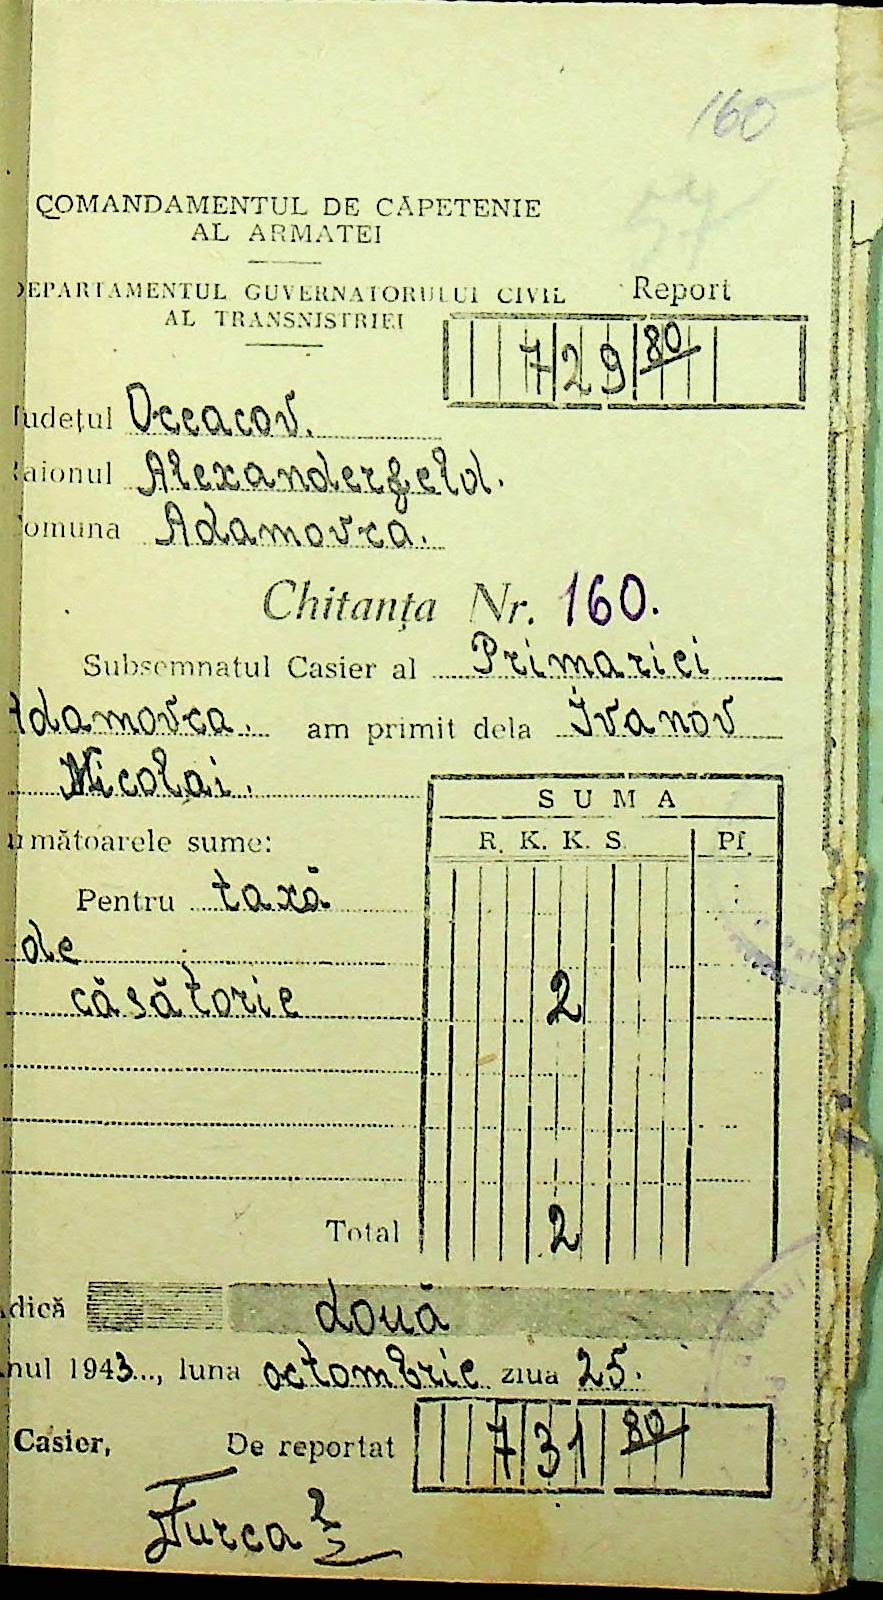 160
57
COMANDAMENTUL DE CĂPETENIE
AL ARMATEI
DEPARTAMENTUL GUVERNATORULUI CIVIL
AL TRANSNISTRIEI
Report
729 80
Județul Oceacov.
Raionul Alexanderfeld.
Comuna Adamovca.
Chitanța Nr. 160.
Subsemnatul Casier al Primariei
Adamovca. am primit dela Ivanov
Nicolai.
următoarele sume:
SUMA
R. K. K. S. Pf.
Pentru taxă
de
căsătorie 2
Total 2
Adică două
Anul 1943..., luna octombrie ziua 25.
Casier, De reportat 731 80